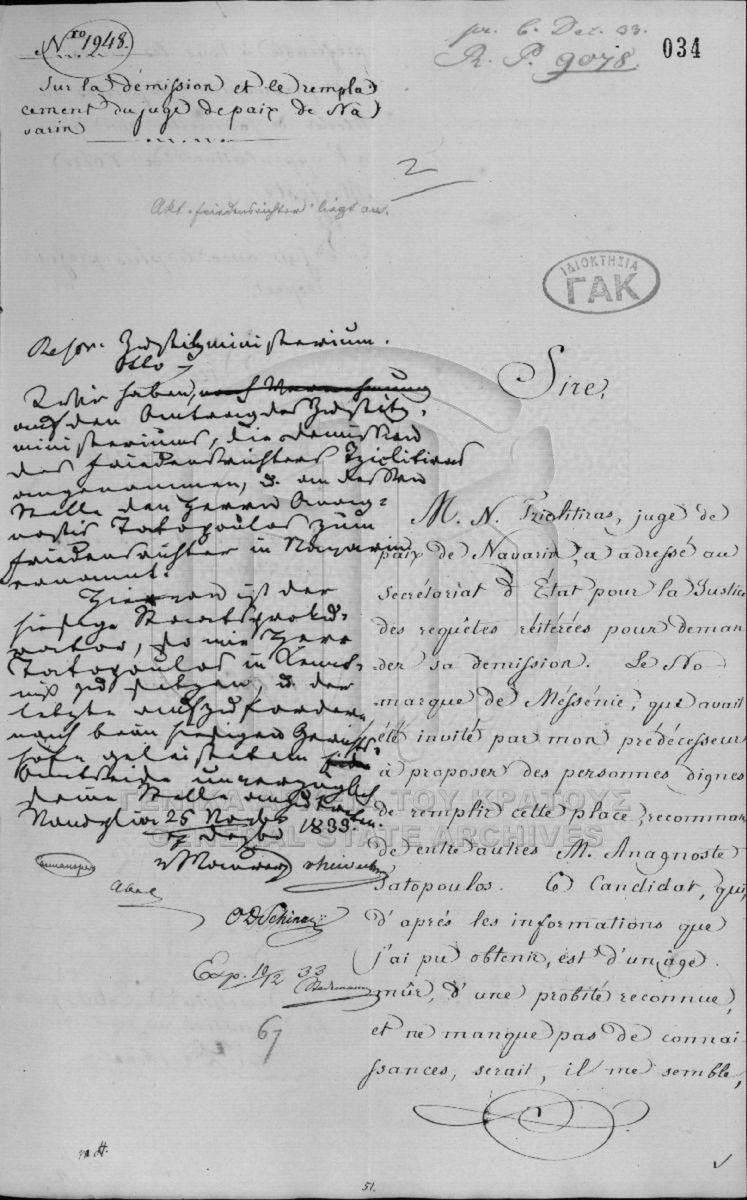 Nro 1948.
Sur la démission et le rempla
cement du juge de paix de Na
varin
pr. 6. Dec. 33.
R. P. 9078.
034
2
Akt. Friedensrichter liegt an.
ΙΔΙΟΚΤΗΣΙΑ
ΓΑΚ
Resp. Justizministerium.
Otto
Wir haben, nach Vernehmung
auf den Antrag des Justiz-
ministeriums, die Demission
des Friedensrichters Tziclitiras
angenommen, u. an dessen
Stelle den Herrn Anag-
nostis Tatopoulos zum
Friedensrichter in Navarin
ernannt.
Hievon ist der
hiesige Staatsproku-
rator, so wie Herr
Tatopoulos in Kennt-
niß zu setzen, u. der
letzte aufzufordern
nach beim hiesigen Gerichts-
hofe geleistetem
Amtseide unverzüglich
seine Stelle anzutreten.
Nauplia 25 Novbr
7 Dezbr 1833.
Maurer Heideck
Abel
O D Schinas
Exp. 10/12 33
67
Sire,
M. N. Trichitiras, juge de
paix de Navarin, a adressé au
secrétariat d'État pour la Justice
des requêtes réitérées pour deman
der sa demission. Le No
marque de Méssénie, qui avait
été invité par mon prédécesseur
à proposer des personnes dignes
de remplir cette place, recomman
de entre autres M. Anagnoste
Tatopoulos. Ce Candidat, qui,
d'aprés les informations que
j'ai pu obtenir, est d'un âge
mûr, d'une probité reconnue,
et ne manque pas de connai
ssances, serait, il me semble,
ΓΕΝΙΚΑ ΑΡΧΕΙΑ ΤΟΥ ΚΡΑΤΟΥΣ
GENERAL STATE ARCHIVES
51.